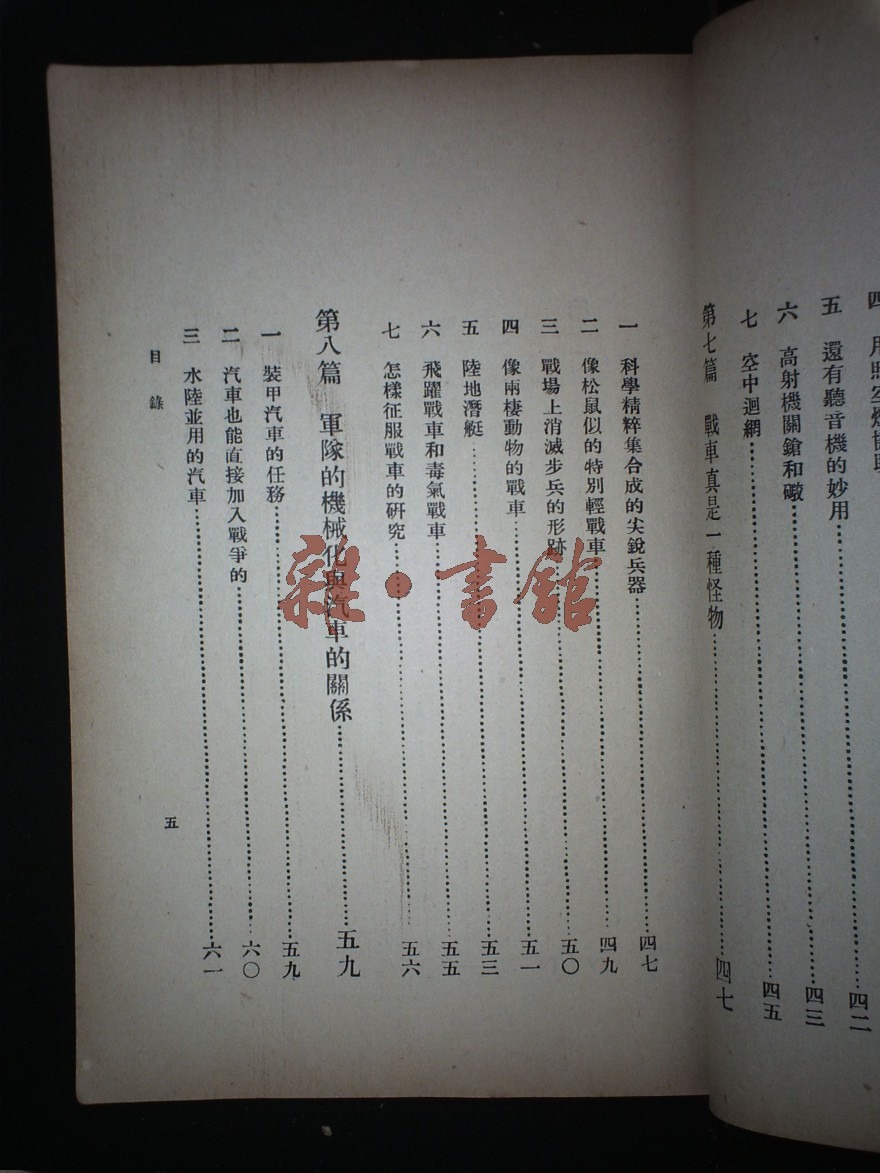 五 還有聽音機的妙用
四二
六 高射機關鎗和礮 四三
七 空中迴網 四五
第七篇 戰車真是一種怪物 四七
一 科學精粹集合成的尖銳兵器 四七
二 像松鼠似的特別輕戰車 四九
三 戰場上消滅步兵的形跡 五〇
四 像兩棲動物的戰車 五一
五 陸地潛艇 五三
六 飛躍戰車和毒氣戰車 五五
七 怎樣征服戰車的研究 五六
第八篇 軍隊的機械化與汽車的關係 五九
一 裝甲汽車的任務 五九
二 汽車也能直接加入戰爭的 六〇
三 水陸並用的汽車 六一
目錄
五
雜·書館